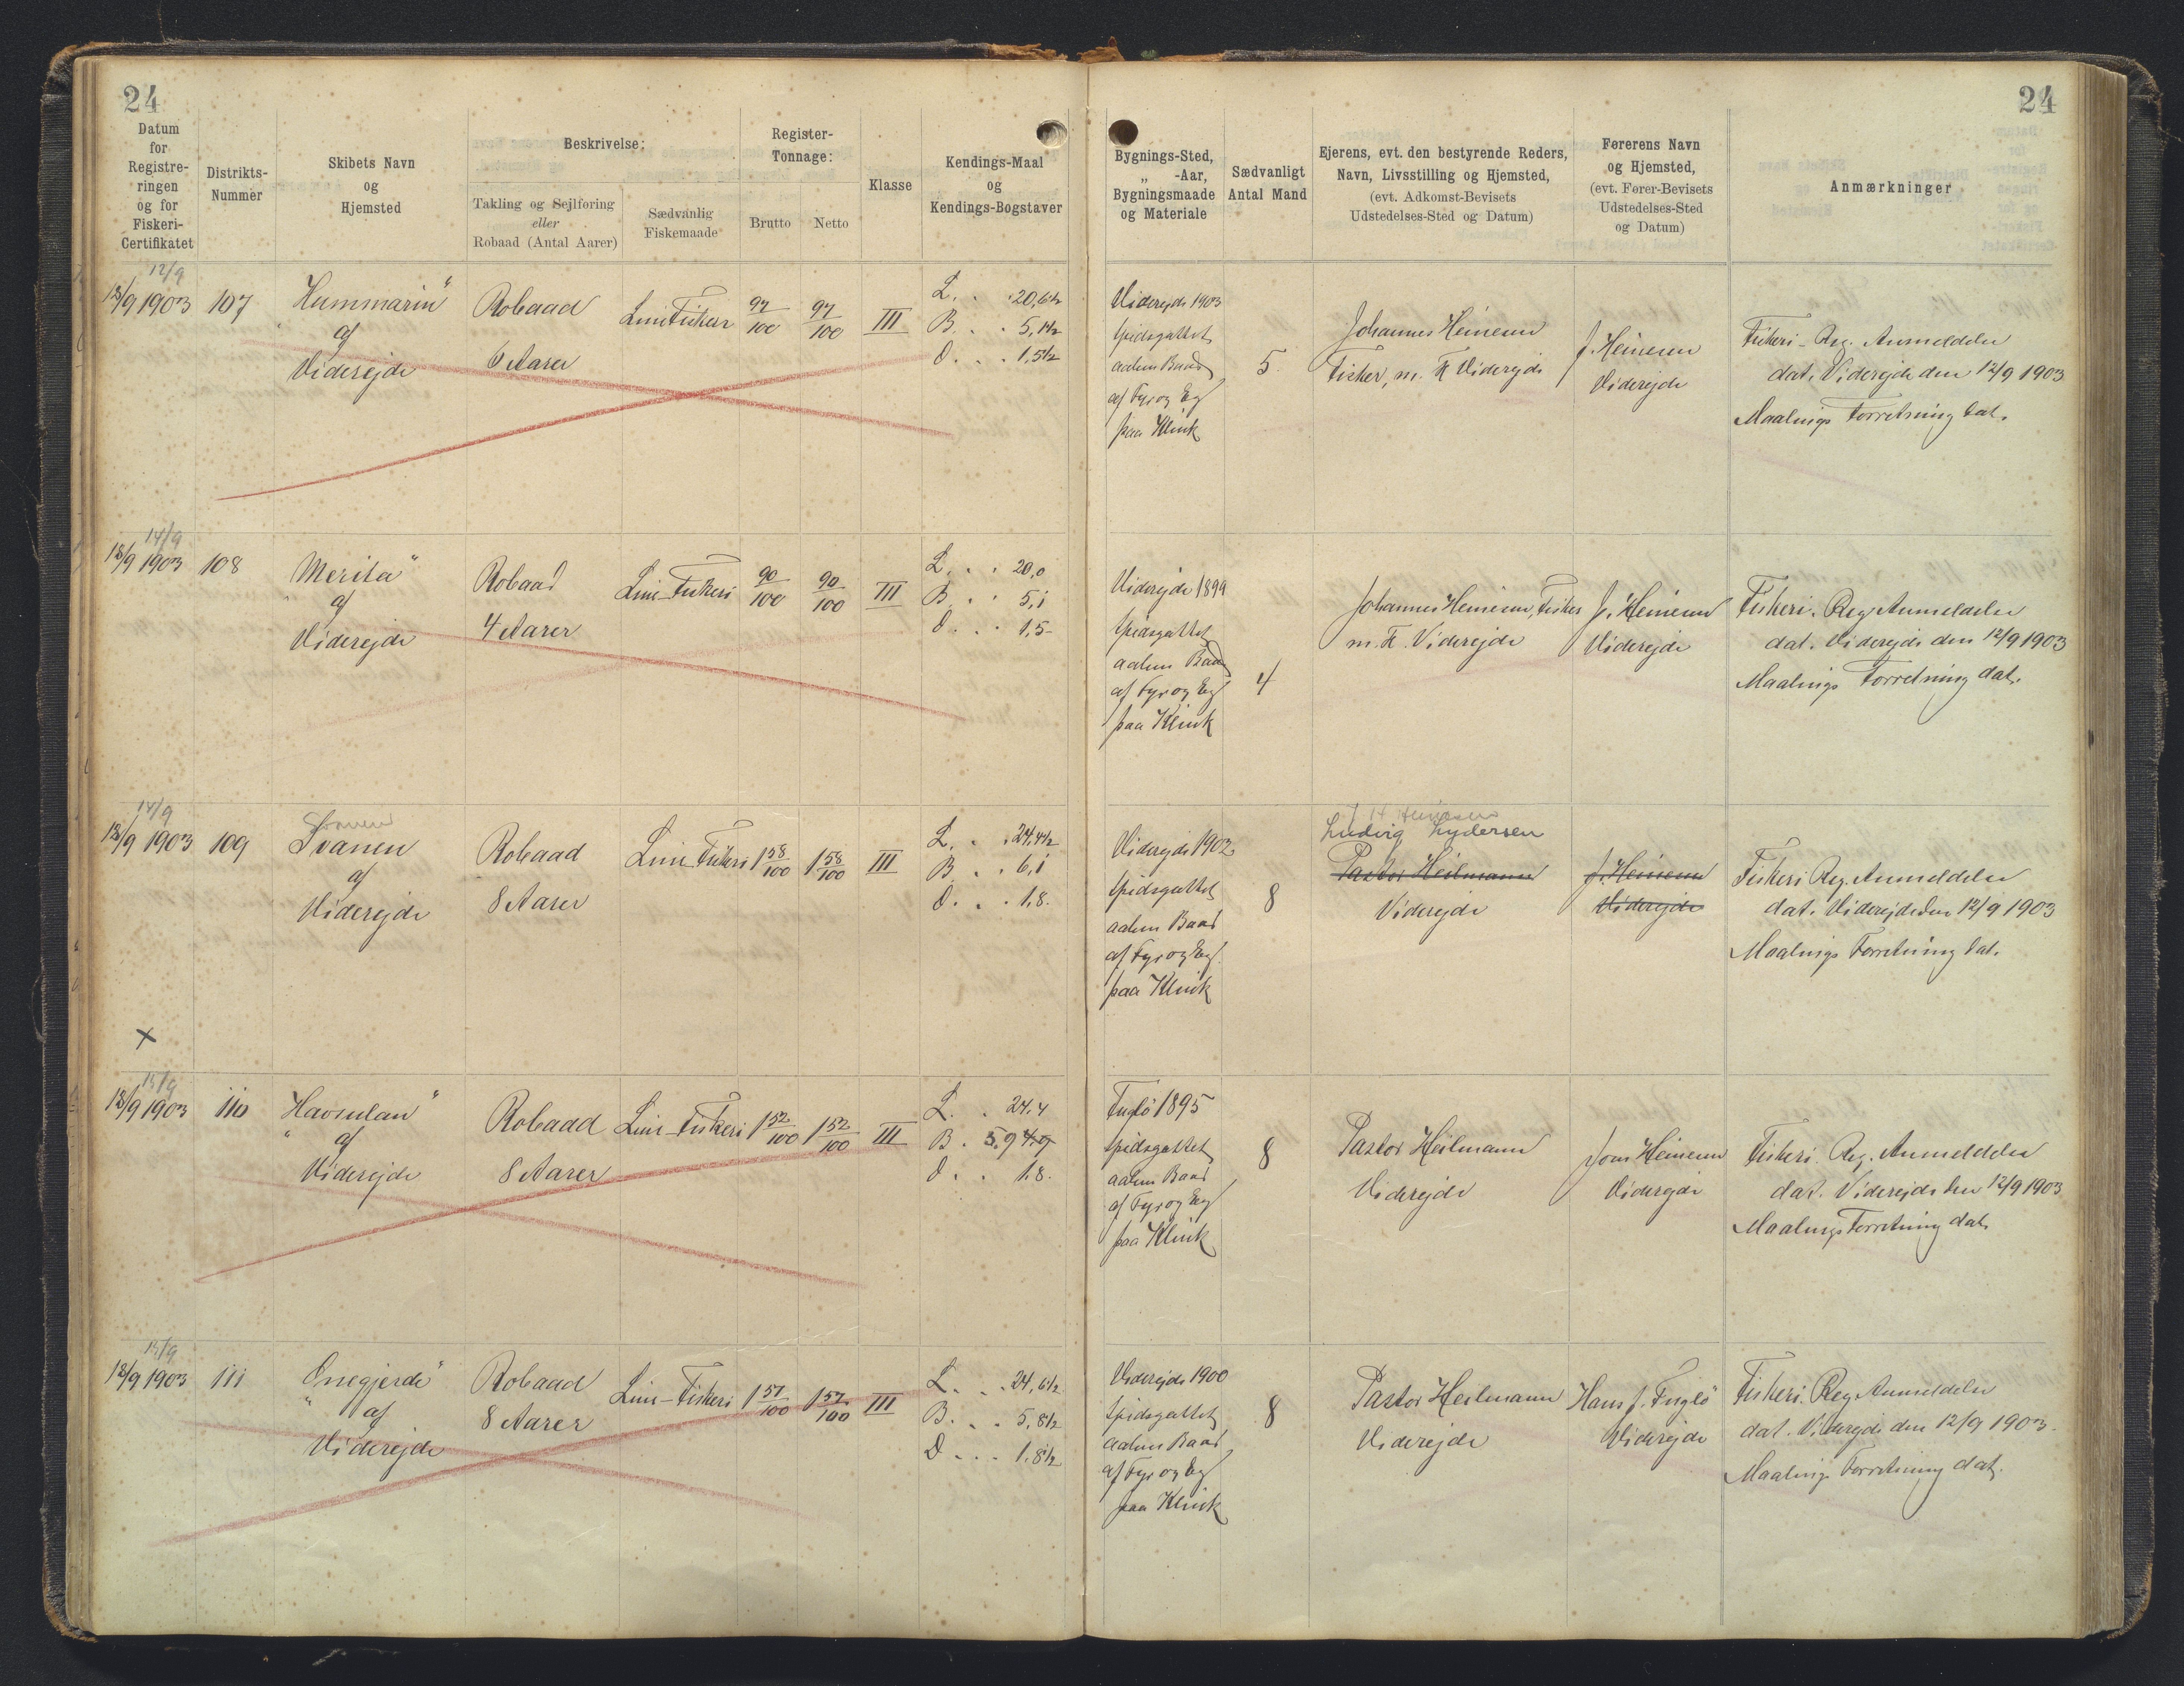 24
24
Datum
for
Registre-
ringen
og for
Fiskeri-
Certifikatet
Distrikts-
Nummer
Skibets Navn
og
Hjemsted
Beskrivelse:
Takling og Sejlføring
eller
Robaad (Antal Aarer)
Sædvanlig
Fiskemaade
Register-
Tonnage:
Brutto
Netto
Klasse
Kendings-Maal
og
Kendings-Bogstaver
Bygnings-Sted,
„ -Aar,
Bygningsmaade
og Materiale
Sædvanligt
Antal Mand
Ejerens, evt. den bestyrende Reders,
Navn, Livsstilling og Hjemsted,
(evt. Adkomst-Bevisets
Udstedelses-Sted og Datum)
Førerens Navn
og Hjemsted,
(evt. Fører-Bevisets
Udstedelses-Sted
og Datum)
Anmærkninger
12/9
18/9 1903
107
Hummarin"
af
Viderejde
Robaad
6 Aarer
Line Fiskeri
97/100
97/100
III
L. . . 20,6½
B. . . 5,1½
D. . . 1,5½
Viderejde 1903
spidsgattet
aaben Baad
af Fyr og Eg
paa Klink
5.
Johannes Heinesen
Fisker, m. F. Viderejde
J. Heinesen
Viderejde
Fiskeri-Reg. Anmeldelse
dat. Viderejde den 12/9 1903
Maalings Forretning dat.
14/9
18/9 1903
108
"Merita"
af
Viderejde
Robaad
4 Aarer
Line-Fiskeri
90/100
90/100
III
L. . . 20,0
B. . . 5,1
D. . . 1,5-
Viderejde 1899
spidsgattet
aaben Baad
af Fyr og Eg
paa Klink
4
Johannes Heinesen, Fisker
m. F. Viderejde
J. Heinesen
Viderejde
Fiskeri. Reg Anmeldelse
dat. Viderejde den 12/9 1903
Maalings Forretning dat.
14/9
18/9 1903
109
Svanen
Svanen
af
Viderejde
Robaad
8 Aarer
Line Fiskeri
1 58/100
1 58/100
III
L. . . 24,4½
B. . . 6,1
D. . . 1,8.
Viderejde 1902
spidsgattet
aaben Baad
af Fyr og Eg.
paa Klink
8
J H Heinesen
Ludvig Lydersen
Pastor Heilmann
Viderejde
J. Heinesen
Viderejde
Fiskeri Reg. Anmeldelse
dat. Viderejde den 12/9 1903
Maalings Forretning dat.
x
15/9
18/9 1903
110
"Havsulan"
af
Viderejde
Robaad
8 Aarer
Line-Fiskeri
1 52/100
1 52/100
III
L. . 24,4
B. 5,9 4,9
D. . . 1,8.
Fuglö 1895
spidsgattet
aaben Baad
af Fyr og Eg
paa Klink
8
Pastor Heilmann
Viderejde
Joen Heinesen
Viderejde
Fiskeri. Reg. Anmeldelse
dat. Viderejde den 12/9 1903
Maalings Forretning dat.
15/9
18/9 1903
111
af
Viderejde
Robaad
8 Aarer
Line-Fiskeri
1 57/100
1 57/100
III
L. . . 24,6½
B. . . 5,8½
D. . . 1,8½
Viderejde 1900
spidsgattet
aaben Baad
af Fyr og Eg
paa Klink
8
Pastor Heilmann
Viderejde
Hans J. Fuglö
Viderejde
Fiskeri. Reg Anmeldelse
dat. Viderejde den 12/9 1903.
Maaling. Forretning dat.